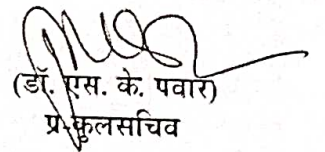 (डॉ. एस. के. पवार)
प्र-कुलसचिव